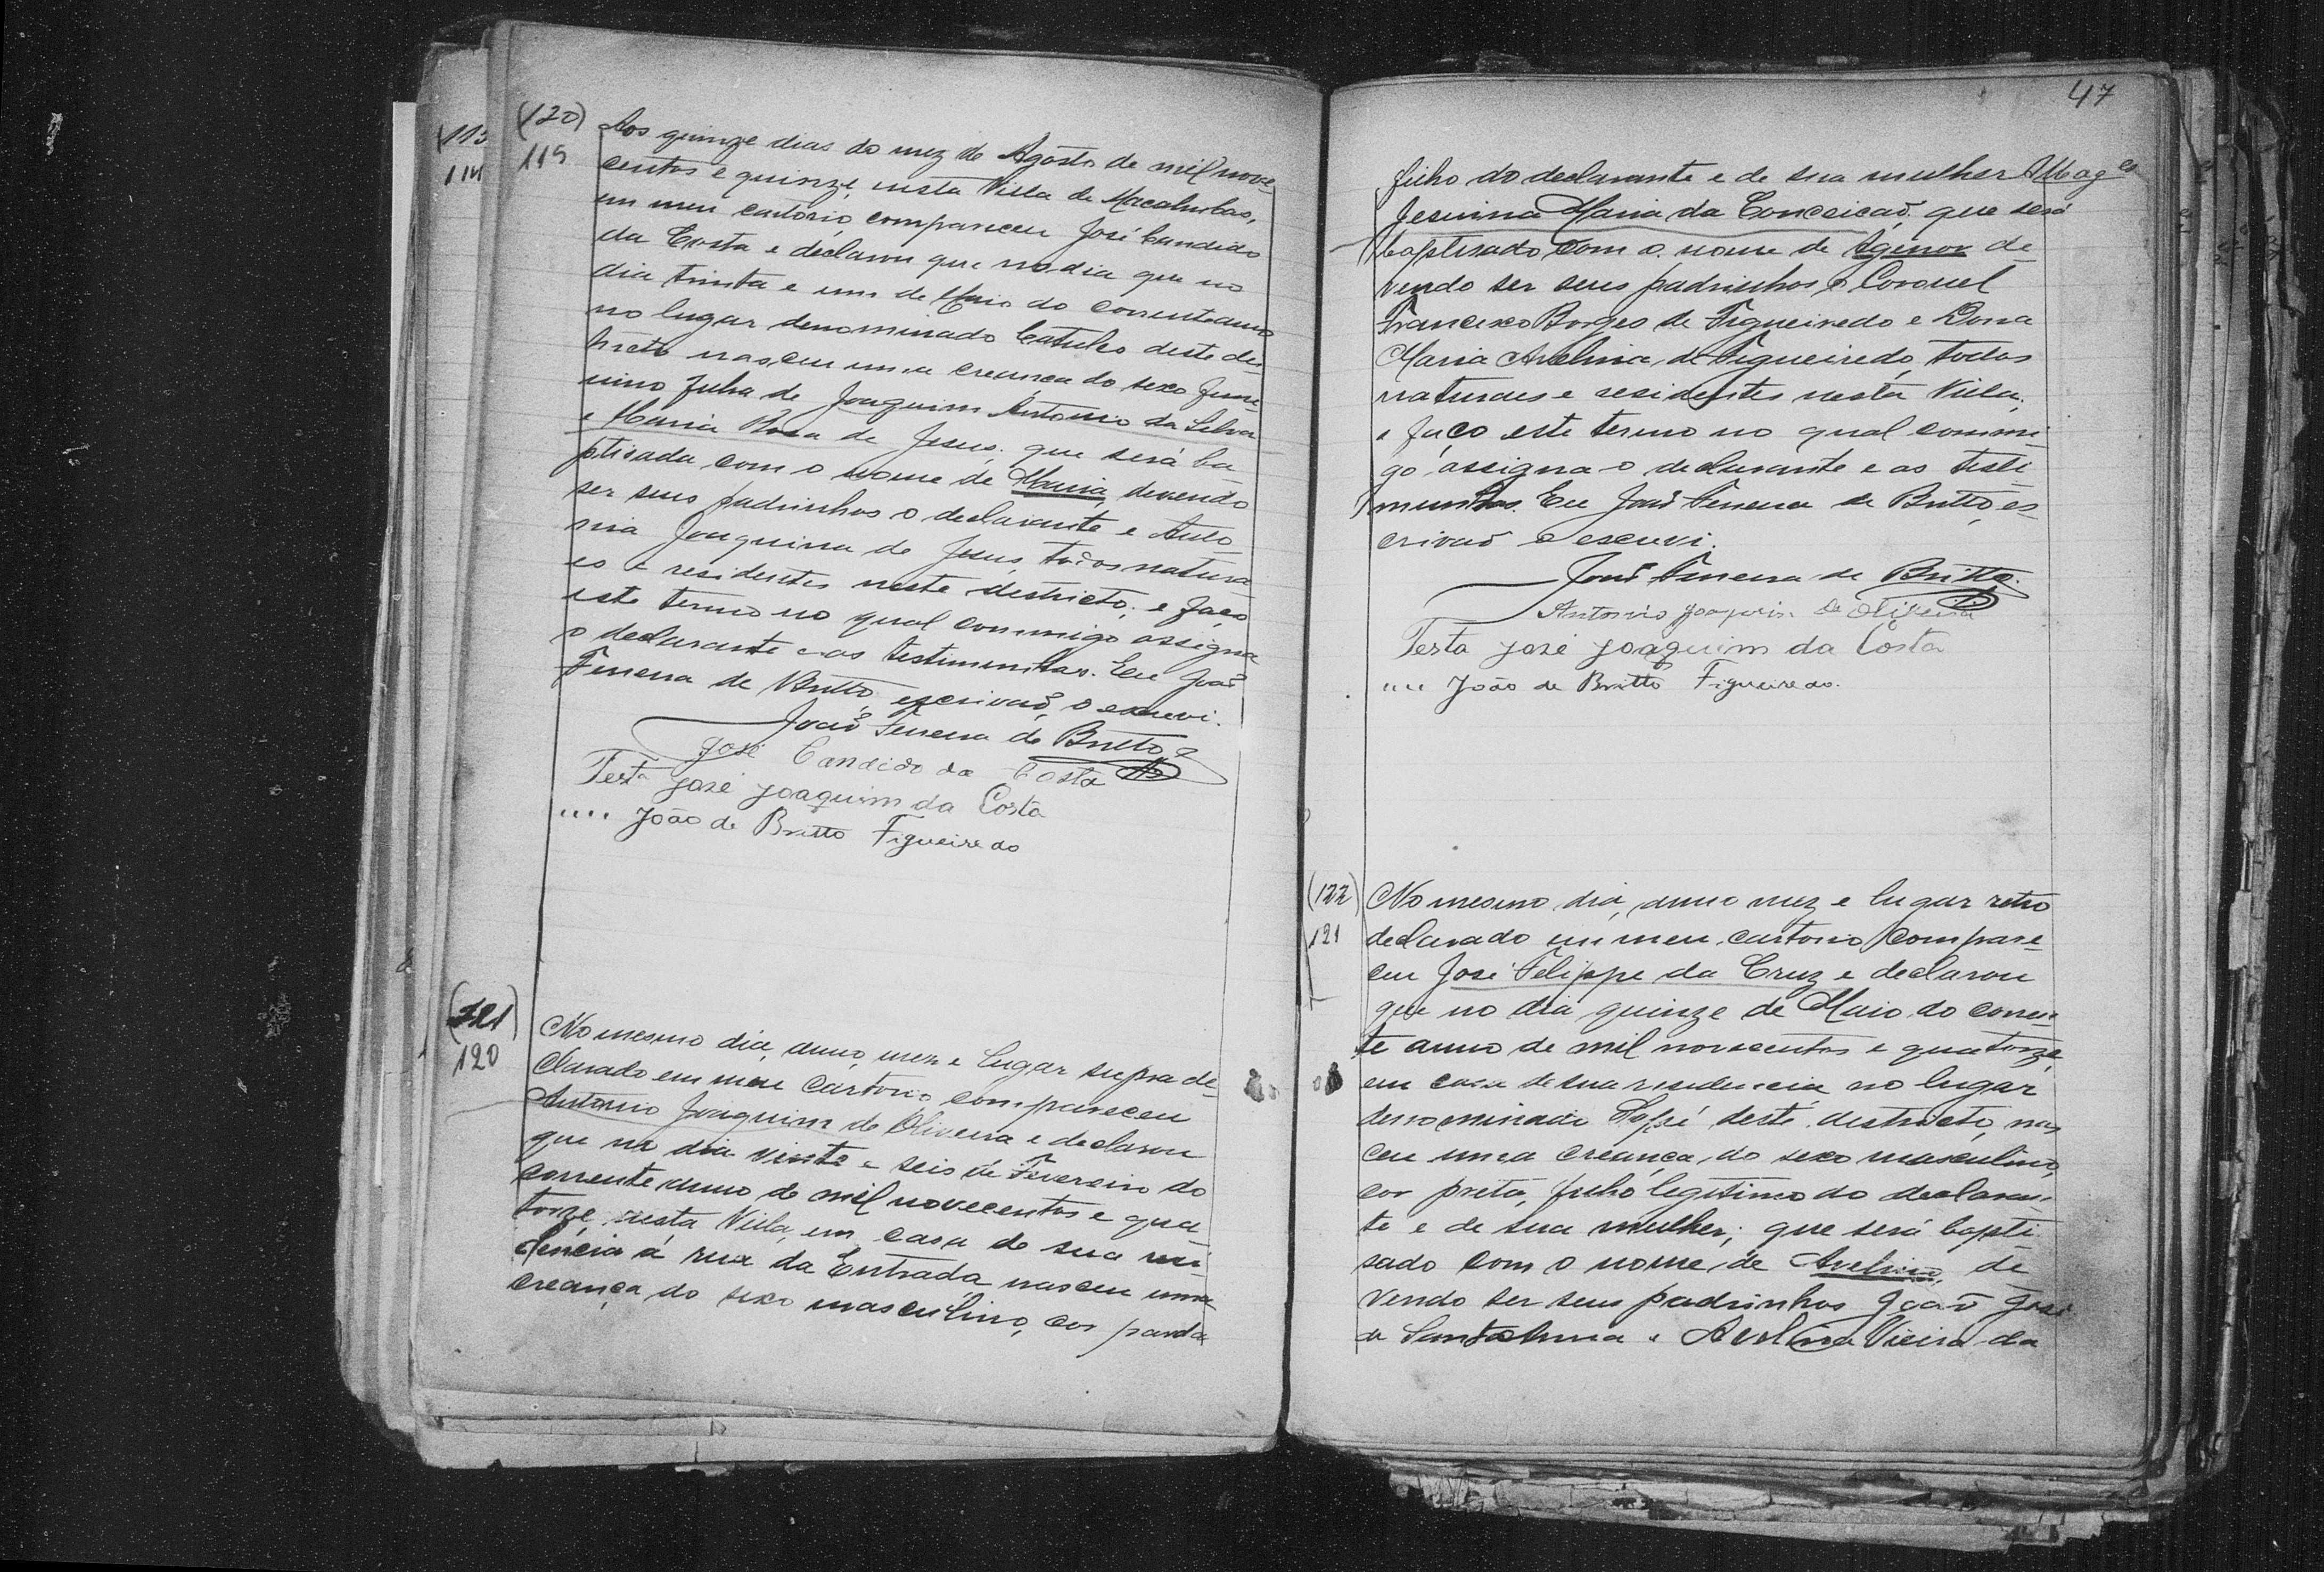 (113
114
(120)
119
Aos quinze dias do mez de Agosto de mil nove-
centos e quinze, nesta Villa de Macahubas,
em meu cartorio, compareceu José Candido
da Costa e declarou que no dia que no
dia trinta e um de Maio do corrente anno
no lugar denominado Catules deste dis-
tricto nasceu uma creança do sexo femi-
nino filha de Joaquim Antonio da Silva
e Maria Rosa de Jesus; que será ba-
ptisada com o nome de Maria, devendo
ser seus padrinhos o declarante e Anto-
nia Joaquina de Jesus, todos natura-
es e residentes neste destricto; e faço
este termo no qual commigo assigna
o declarante e as testimunhas. Eu João
Ferreira de Britto, escrivaõ, o escrevi.
João Ferreira de Britto
José Candido da Costa
Testa José Joaquim da Costa
"" João de Britto Figueiredo
(121)
120
No mesmo dia, anno, mez e lugar supra de-
clarado em meu cartorio compareceu
Antonio Joaquim de Oliveira e declarou
que no dia vinte e seis de Fevereiro do
corrente anno de mil novecentos e qua-
torze, nesta Villa, em casa de sua resi-
dencia á rua da Entrada, nasceu uma
creança do sexo masculino, cor parda
47
filho do declarante e de sua mulher
Jesuina Maria da Conceicaõ, que será
baptisado com o nome de Agenor de-
vendo ser seus padrinhos o Coronel
Francisco Borges de Figueiredo e Dona
Maria Avelina de Figueiredo, todos
naturaes e residentes nesta Villa;
e faço este termo no qual commi-
go assigna o declarante e as testi-
munhas. Eu João Ferreira de Britto, es-
crivaõ o escrevi.
João Ferreira de Britto.
Antonio Joaquim de Oliveira
Testa José Joaquim da Costa
"" João de Britto Figueiredo.
(122)
121
No mesmo dia, anno mez e lugar retro
declarado em meu cartorio, compare-
ceu José Felippe da Cruz e declarou
que no dia quinze de Maio do corren-
te anno de mil novecentos e quatorze,
em casa de sua residencia no lugar
denominado deste destricto, nas-
ceu uma creança, do sexo masculino,
cor preta, filho legitimo do declaran-
te e de sua mulher; que será bapti-
sado com o nome de Avelino, de-
vendo ser seus padrinhos João José
de Santa Anna e Avelina Vieira da